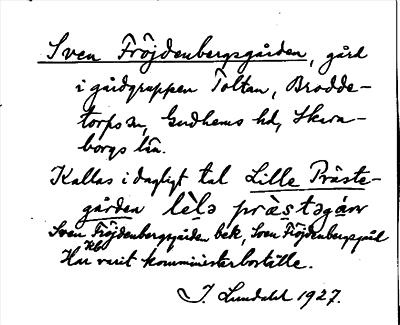 Sven Fröjdenbergsgården, gård
i gårdgruppen Toltan, Brodde-
torps sn, Gudhems hd, Skara-
borgs län.
Kallas i dagligt tal Lille Präste-
gården
Sven Fröjdenbergsgården bek. Sven Fröjdenbergsgård
Har varit komministerboställe.
J. Lundahl 1927.